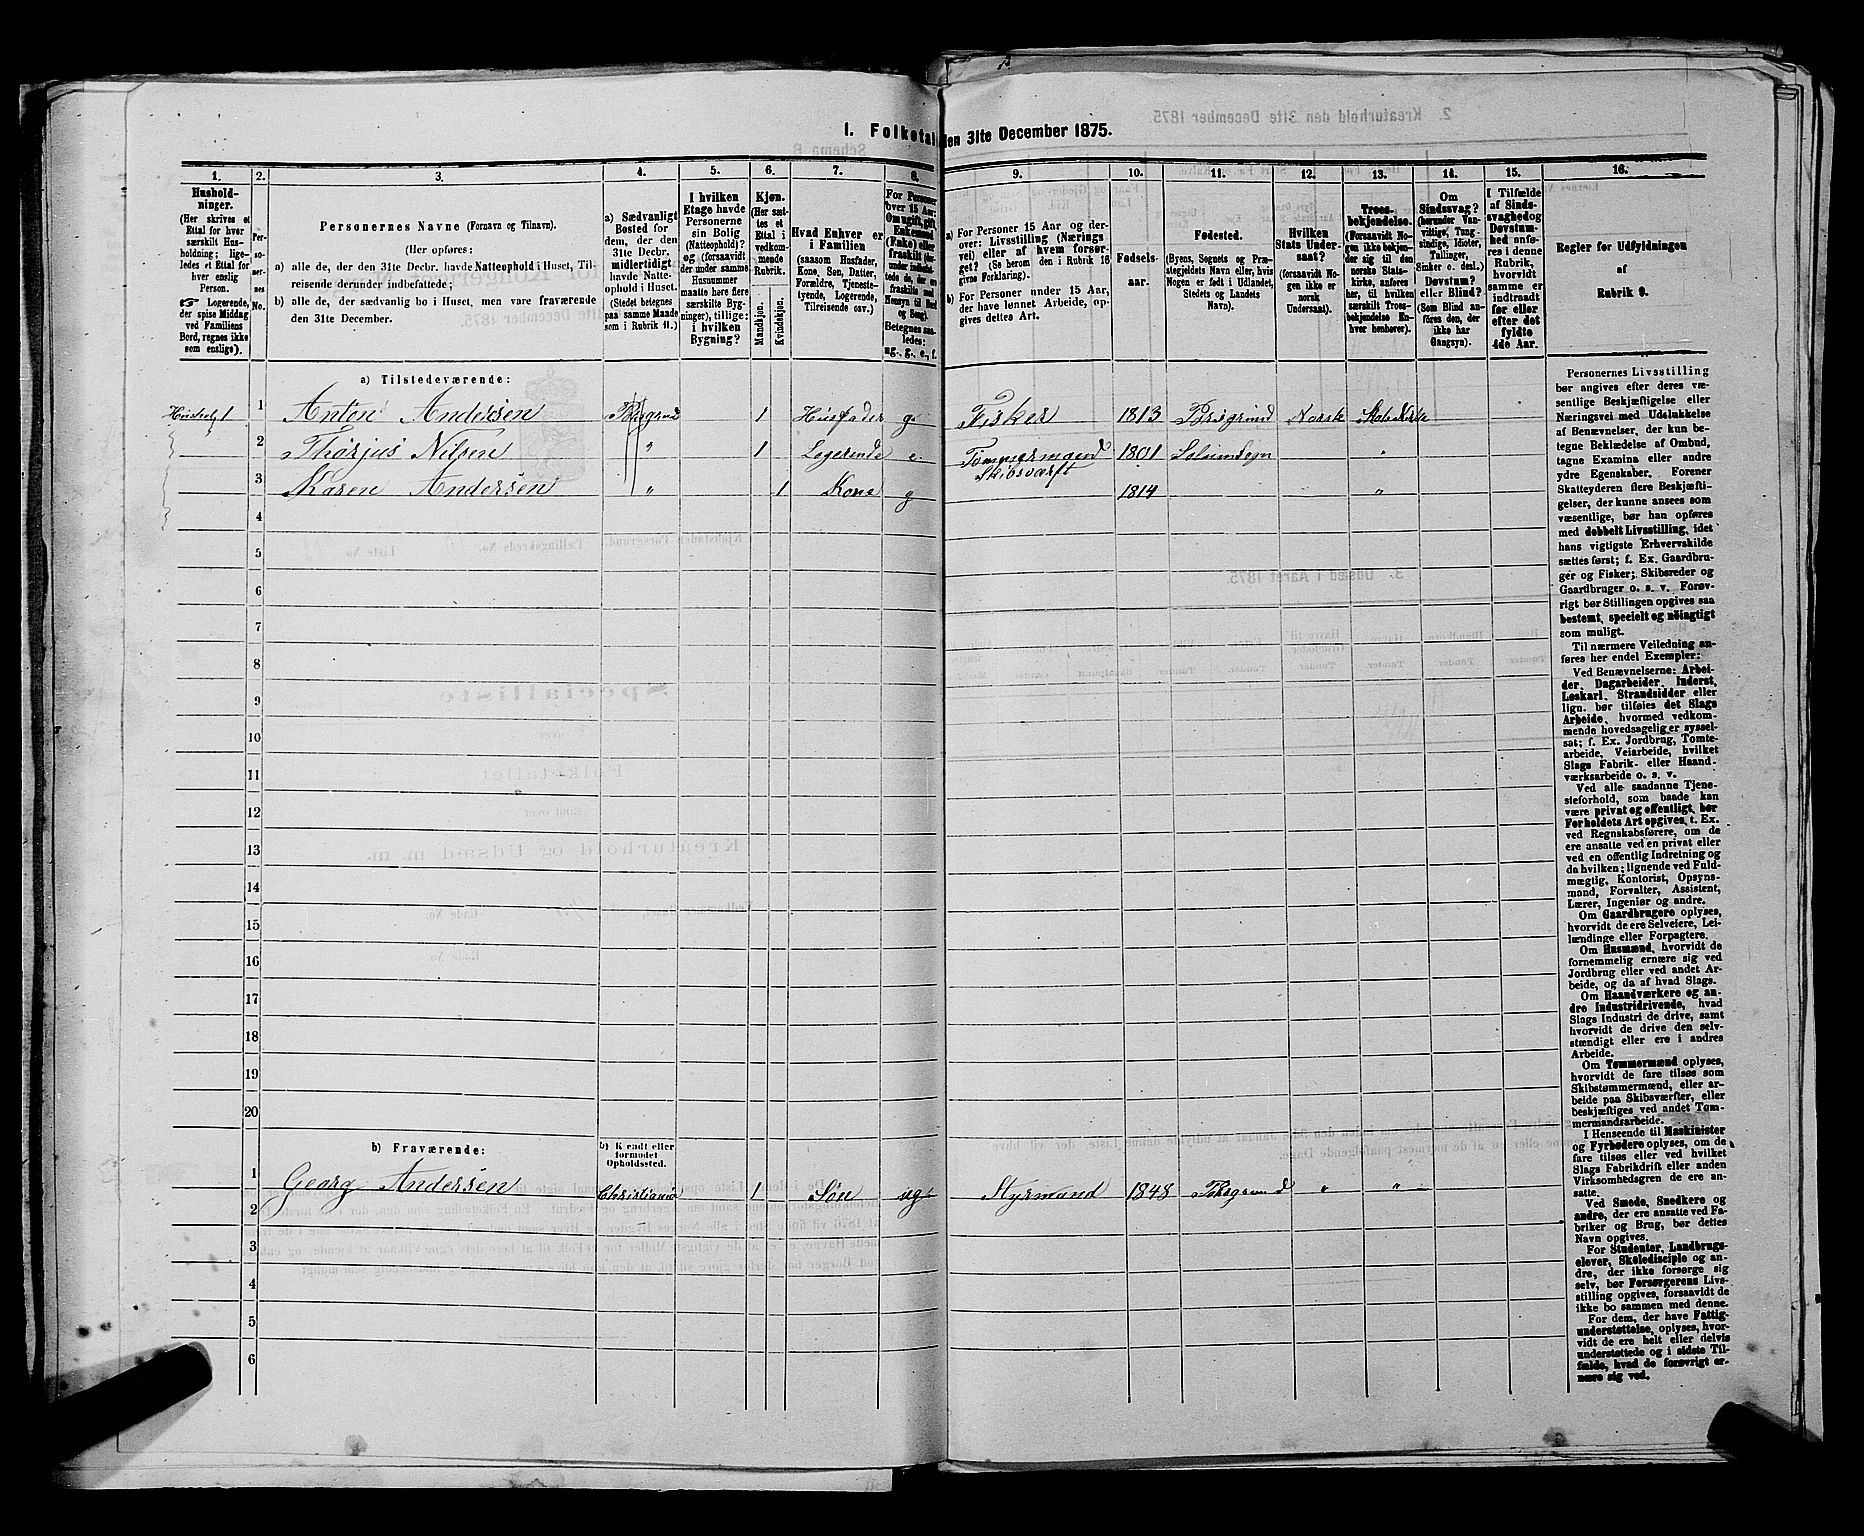 I. Folketal den 31te December 1875.
1.
2.
3.
4.
5.
6.
7.
8.
9.
10.
11.
12.
13.
14.
15.
16.
Hushold-
ninger.
(Her skrives et
Ettal for hver
særskilt Hus-
holdning; lige-
ledes et Ettal for
hver enslig
Person.
Logerende,
der spise Middag
ved Familiens
Bord, regnes ikke
som enslige).
Per-
so-
ner-
nes
No.
Personernes Navne (Fornavn og Tilnavn).
(Her opføres:
a) alle de, der den 31te Decbr. havde Natteophold i Huset, Til-
reisende derunder indbefattede;
b) alle de, der sædvanlig bo i Huset, men vare fraværende
den 31te December.
a) Sædvanligt
Bosted for
dem, der den
31te Decbr.
midlertidigt
havde Natte-
ophold i Huset.
(Stedet betegnes
paa samme Maade
som i Rubrik 11.)
I hvilken
Etage havde
Personerne
sin Bolig
(Natteophold)?
og (forsaavidt
der under samme
Husnummer
maatte høre flere
særskilte Byg-
ninger), tillige:
i hvilken
Bygning?
Kjøn.
(Her sæt-
tes et
Ettal i
vedkom-
mende
Rubrik.
Mandkjøn.
Kvindekjøn.
Hvad Enhver er
i Familien
(saasom Husfader,
Kone, Søn, Datter,
Forældre, Tjeneste-
tyende, Logerende,
Tilreisende osv.)
For Personer
over 15 Aar:
Om ugift, gift,
Enkemand
(Enke) eller
fraskilt
Betegnes saa-
ledes:
ug., g., e., f.
a) For Personer 15 Aar og der-
over: Livsstilling (Nærings
vei) eller af hvem forsør-
get? (Se herom den i Rubrik 16
givne Forklaring).
b) For Personer under 15 Aar,
der have lønnet Arbeide, op-
gives dettes Art.
Fødsels-
aar.
Fødested.
(Byens, Sognets og Præ-
stegjeldets Navn eller, hvis
Nogen er født i Udlandet,
Stedets og Landets
Navn).
Hvilken
Stats Under-
saat?
(forsaavidt No-
gen ikke er
norsk
Undersaat).
Troes-
bekjendelse.
(Forsaavidt No-
gen ikke bekjen-
der sig til den
norske Stats-
kirke, anføres
her, til hvilken
særskilt Troes-
bekjendelse En-
hver henhører).
Om
Sindssvag?
(herunder Van-
vittige, Tung-
sindige, Idioter,
Tullinger,
Sinker o. desl.)
Døvstum?
eller Blind?
(Som Blind an-
føres den, der
ikke har
Gangsyn).
I Tilfælde
af Sinds-
svaghed og
Døvstum-
hed anfø-
res i denne
Rubrik,
hvorvidt
samme er
indtraadt
før eller
efter det
fyldte
4de Aar.
Regler for Udfyldningen
af
Rubrik 9.
a) Tilstedeværende:
1 1 Anton Andersen Porsgrund 1 Husfader g Fisker 1813 Porsgrund Norsk
2 Thorjus Nilsen " 1 Logerende e Tømmermand Skibsværft 1801 "
3 Karen Andersen " 1 Kone g 1814 "
4
5
6
7
8
9
10
11
12
13
14
15
16
17
18
19
20
b) Fraværende:
b) Kjendt eller
formodet
Opholdssted.
1 Georg Andersen Christiania 1 Søn ug Styrmand 1848 Porsgrund " "
2
3
4
5
6
Personernes Livsstilling
bør angives efter deres væ-
sentlige Beskjæftigelse eller
Næringsvei med Udelukkelse
af Benævnelser, der kun be-
tegne Beklædelse af Ombud,
tagne Examina eller andre
ydre Egenskaber. Forener
Skatteyderen flere Beskjæfti-
gelser, der kunne ansees som
væsentlige, bør han opføres
med dobbelt Livsstilling, idet
hans vigtigste Erhvervskilde
sættes først; f. Ex. Gaardbru-
ger og Fisker; Skibsreder og
Gaardbruger o. s. v. Forøv-
rigt bør Stillingen opgives saa
bestemt, specielt og nöiagtigt
som muligt.
Til nærmere Veiledning an-
føres her endel Exempler:
Ved Benævnelserne: Arbei-
der, Dagarbeider, Inderst,
Løskarl, Strandsidder eller
lign. bør tilføies det Slags
Arbeide, hvormed vedkom-
mende hovedsagelig er syssel-
sat; f. Ex. Jordbrug, Tomte-
arbeide, Veiarbeide, hvilket
Slags Fabrik- eller Haand-
værksarbeide o. s. v.
Ved alle saadanne Tjene-
steforhold, som baade kan
være privat og offentligt, bør
Forholdets Art opgives, f. Ex.
ved Regnskabsførere, om de
ere ansatte ved en privat eller
ved en offentlig Indretning og
da hvilken; lignende ved Fuld-
mægtig, Kontorist, Opsyns-
mand, Forvalter, Assistent,
Lærer, Ingeniør og andre.
Om Gaardbrugere oplyses,
hvorvidt de ere Selveiere, Lei-
lændinge eller Forpagtere.
Om Husmænd, hvorvidt de
fornemmelig ernære sig ved
Jordbrug eller ved andet Ar-
beide, og da af hvad Slags.
Om Haandværkere og an-
dre Industridrivende, hvad
Slags Industri de drive, samt
hvorvidt de drive den selv-
stændigt eller ere i andres
Arbeide.
Om Tømmermænd oplyses,
hvorvidt de fare tilsøs som
Skibstømmermænd, eller ar-
beide paa Skibsværfter, eller
beskjæftiges ved andet Tøm-
mermandsarbeide.
I Henseende til Maskinister
og Fyrbødere oplyses, om de
fare tilsøs eller ved hvilket
Slags Fabrikdrift eller anden
Virksomhedsgren de ere an-
satte.
Ved Smede, Snedkere og
andre, der ere ansatte ved Fa-
briker og Brug, bør dettes
Navn opgives.
For Studenter, Landbrugs-
elever, Skoledisciple og an-
dre, der ikke forsørge sig
selv, bør Forsørgerens Livs-
stilling opgives, forsaavidt de
ikke bo sammen med denne.
For dem, der have Fattig-
understøttelse, oplyses, hvor-
vidt de ere helt eller delvis
understøttede og i sidste Til-
fælde, hvad de forøvrigt er-
nære sig ved.